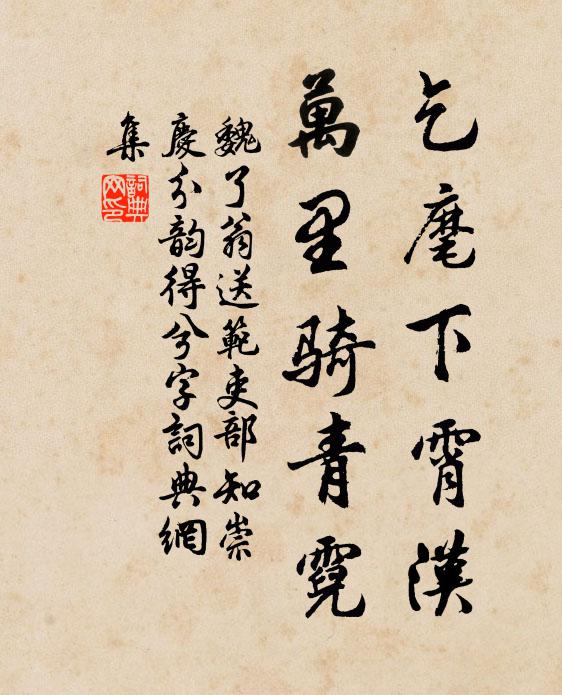 乞麾下霄漢
萬里騎青霓
魏了翁送範吏部知崇
慶分韵得兮字詞典網
集
詞典網印